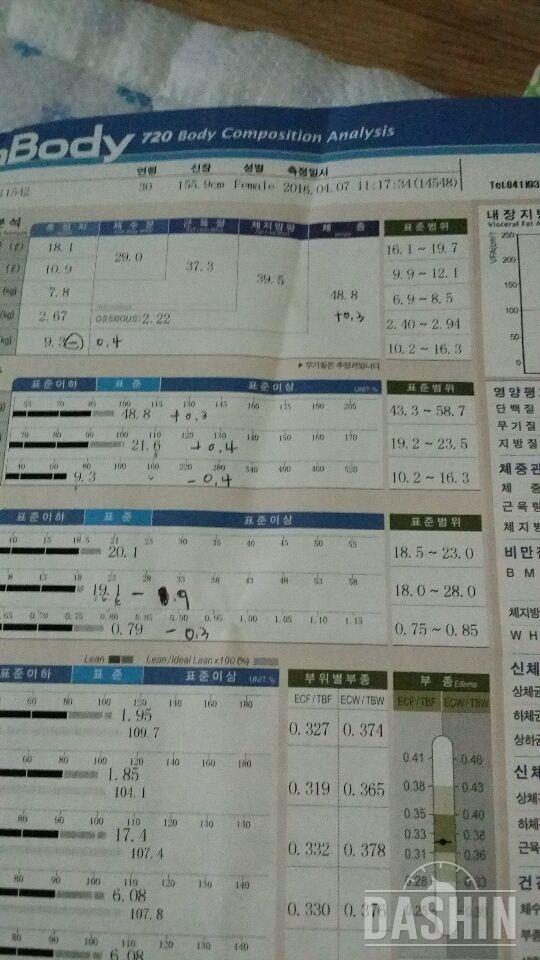 Body 720 Body Composition Analysis
연령 신장 성별 측정일시
11542 30 155.9cm Female 2016.04.07 11:17:34(14548) Tel.041)93
분석 측정치 체수분 근육량 제지방량 체 중 표준범위
(ℓ) 18.1 29.0 37.3 39.5 48.8 16.1 ~ 19.7
(ℓ) 10.9 9.9 ~ 12.1
(kg) 7.8 +0.3 6.9 ~ 8.5
(kg) 2.67 OSSEOUS: 2.22 2.40 ~ 2.94
(kg) 9.3 - 0.4 10.2 ~ 16.3
▶ 무기질은 추정치입니다
내장지방
Visceral Fat A
VFA(cm²)
250
200
150
100
50
0
표준이하 표준 표준이상 UNIT:% 표준범위
55 70 85 100 115 130 145 160 175 190 205
48.8 +0.3 43.3 ~ 58.7
70 80 90 100 110 120 130 140 150 160 170
21.6 +0.4 19.2 ~ 23.5
40 60 80 100 160 220 280 340 400 460 520
9.3 -0.4 10.2 ~ 16.3
영양평
단백질
무기질
지방질
체중관
체 중
근육량
체지방
표준이하 표준 표준이상 표준범위
10 15 18.5 21 23 30 35 40 45 50 55
20.1 18.5 ~ 23.0
8 13 18 23 28 33 38 43 48 53 58
19.1 - 0.9 18.0 ~ 28.0
0.65 0.70 0.75 0.80 0.85 0.90 0.95 1.00 1.05 1.10 1.15
0.79 -0.3 0.75 ~ 0.85
비만
B M
체지방
W H
Lean Lean / Ideal Lean x 100 (%)
표준이하 표준 표준이상 UNIT:% 부위별부종 부 종 Edema
ECF/TBF ECW/TBW ECF/TBF ECW/TBW
60 80 100 120 140 160 180
1.95 0.327 0.374
109.7
60 80 100 120 140 160 180
1.85 0.319 0.365
104.1
80 90 100 110 120 130 140
17.4 0.332 0.378
107.4
80 90 100 110 120 130 140
6.08 0.330 0.376
107.8
80 90 100 110 120 130 140
6.08
0.41 0.46
0.38 0.43
0.35 0.40
0.33 0.38
0.31 0.36
0.28 0.33
신체
상체균
하체균
상하균
신체
상체
하체
근육
건강
체수
부종
DASHIN